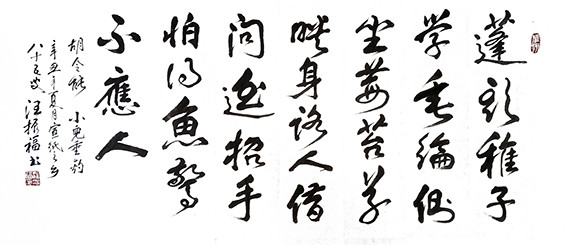 蓬头稚子
学垂纶侧
坐莓苔草
映身路人借
问遥招手
怕得鱼惊
不应人
胡令能 小儿垂钓
辛丑年夏月宣纸之乡
八十五叟 汪振福书